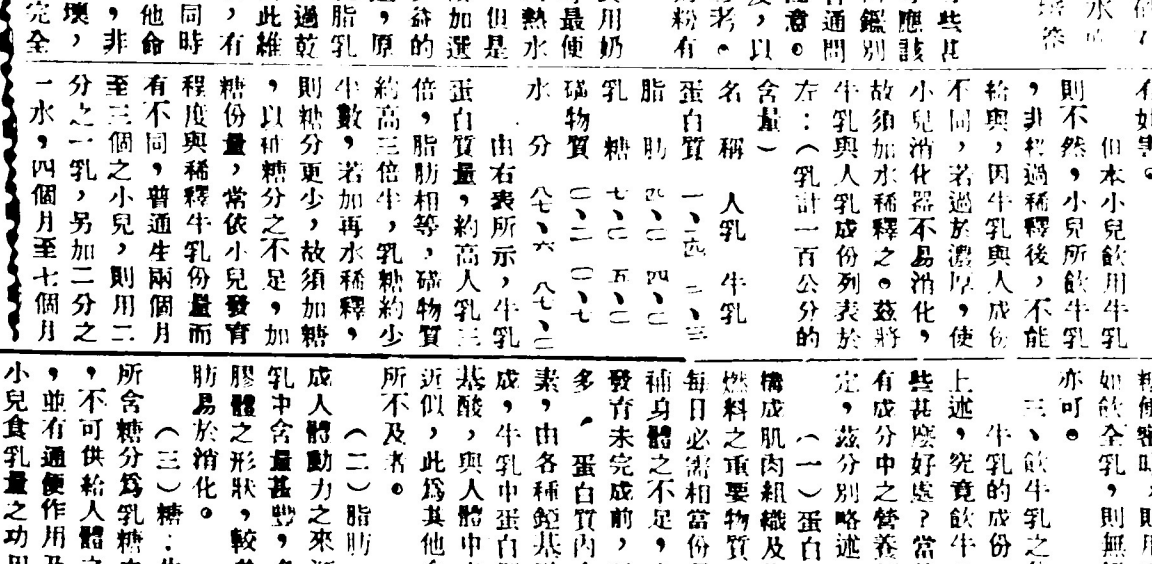 些甚
應該
鑑別
通問
意。
，以
考。
粉有
用奶
最便
熱水
但是
加選
益的
，原
脂乳
過乾
此維
，有
同時
他命
，非
壞，
完全
但本小兒飲用牛乳
則不然，小兒所飲牛乳
，非經過稀釋後，不能
給與，因牛乳與人成份
不同，若過於濃厚，使
小兒消化器不易消化，
故須加水稀釋之。茲將
牛乳與人乳成份列表於
左：（乳計一百公分的
含量）
名稱　人乳　牛乳
蛋白質　一、二四　三、三
脂肪　四、二　四、二
乳糖　七、二　五、二
礦物質　〇、二　〇、七
水分　八七、六　八七、二
由右表所示，牛乳
蛋白質量，約高人乳三
倍，脂肪相等，礦物質
約高三倍牛，乳糖約少
牛數，若加再水稀釋，
則糖分更少，故須加糖
，以補糖分之不足，加
糖份量，常依小兒發育
程度與稀釋牛乳份量而
有不同，普通生兩個月
至三個之小兒，則用二
分之一乳，另加二分之
一水，四個月至七個月
如飲全乳，則無
亦可。
三、飲牛乳之
牛乳的成份
上述，究竟飲牛
些甚麼好處？當
有成分中之營養
定，茲分別略述
（一）蛋白
構成肌肉組織及
燃料之重要物質
每日必需相當份
補身體之不足，
發育未完成前，
多，蛋白質內
素，由各種錏基
成，牛乳中蛋白
基酸，與人體中
近似，此為其他
所不及者。
（二）脂肪
成人體動力之來
乳中含量甚豐，
膠體之形狀，較
肪易於消化。
（三）糖：
所含糖分為乳糖
，不可供給人體
，並有通便作用
小兒食乳量之功